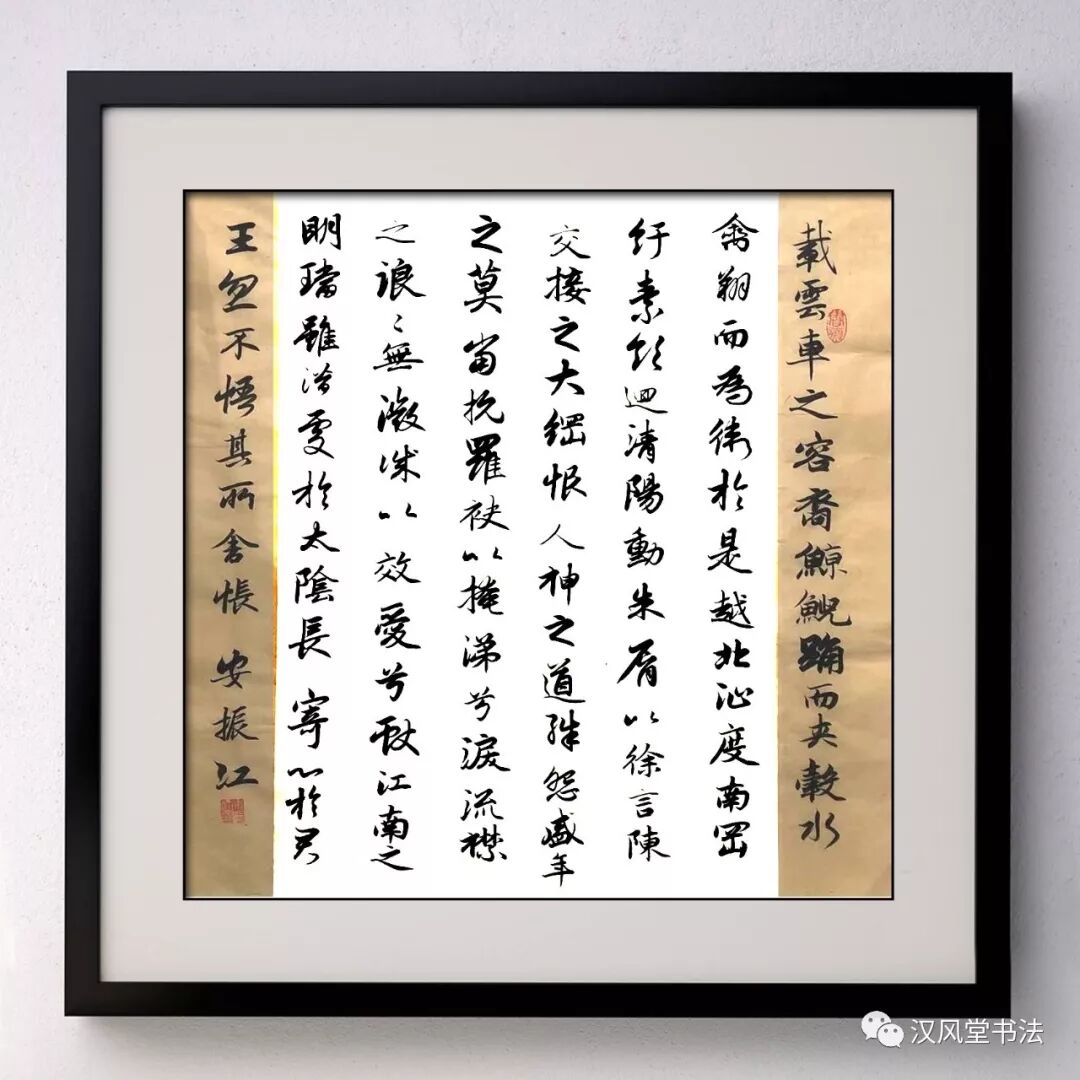 載雲車之容裔鯨鯢踊而夾轂水
禽翔而為衛於是越北沚度南岡
紆素領迴清陽動朱脣以徐言陳
交接之大綱恨人神之道殊怨盛年
之莫當抗羅袂以掩涕兮淚流襟
之浪〻無微誠以效愛兮獻江南之
明璫雖潛處於太陰長寄心於君
王忽不悟其所舍悵 安振江
汉风堂书法